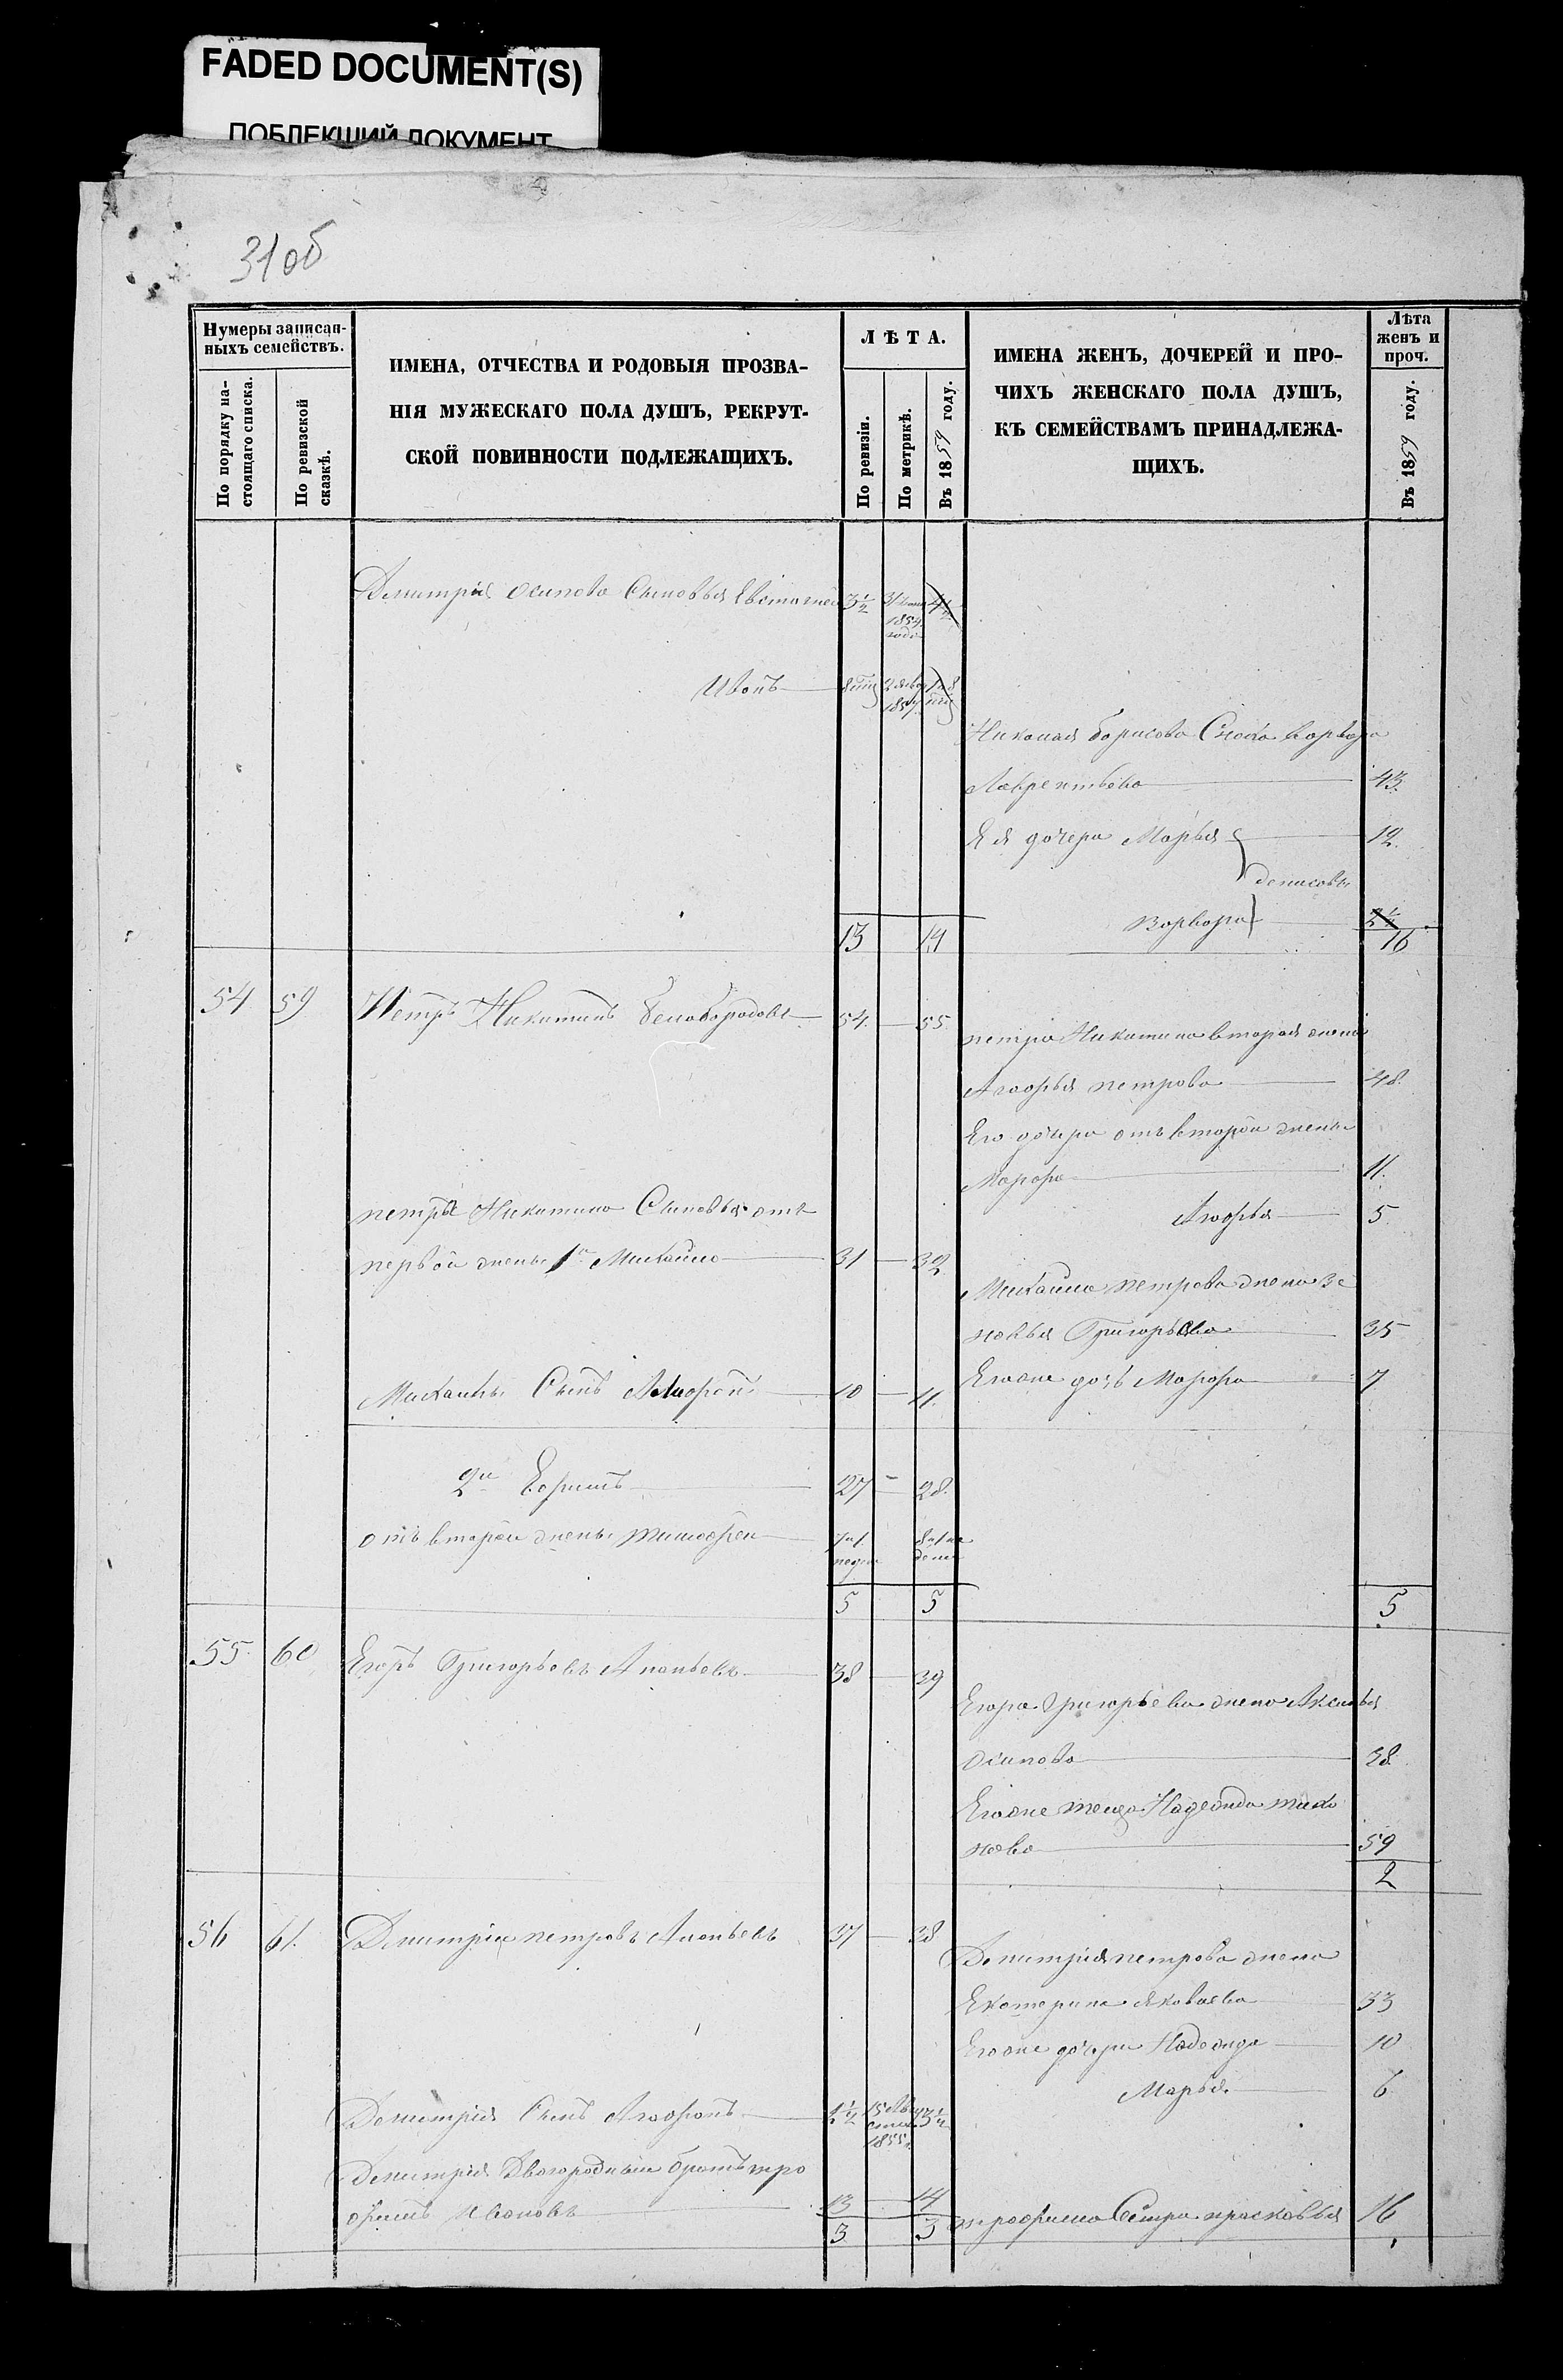 FADED DOCUMENT(S)
ПОБЛЕКШИЙ ДОКУМЕНТ
31об
Нумеры записан-
ныхъ семействъ.
По порядку на-
стоящаго списка.
По ревизской
сказкѣ.
ИМЕНА, ОТЧЕСТВА И РОДОВЫЯ ПРОЗВА-
НІЯ МУЖЕСКАГО ПОЛА ДУШЪ, РЕКРУТ-
СКОЙ ПОВИННОСТИ ПОДЛЕЖАЩИХЪ.
ЛѢТА.
По ревизіи.
По метрикѣ.
Въ 1859 году.
ИМЕНА ЖЕНЪ, ДОЧЕРЕЙ И ПРО-
ЧИХЪ ЖЕНСКАГО ПОЛА ДУШЪ,
КЪ СЕМЕЙСТВАМЪ ПРИНАДЛЕЖА-
ЩИХЪ.
Лѣта
женъ и
проч.
Въ 1859 году.
Дмитрія Осипова Сыновья Евстагнеи 3½ 1854 года 4½
Иванъ 1857
Николая борисова Сноха варвара
Лаврентьева 43.
Ея дочери Марья 12.
денисовы
Варвара 2½
13 14 16
54 59 Петръ Никитинъ белобородовъ 54. 55
петра Никитина вторая жена
Агафья петрова 48.
Его дочери отъ второй жены
Марфа 11.
Агафья 5.
петра Никитина Сыновья отъ
первой жены 1й Михаило 31 32
Михаила петрова жена Зе
новья Григорьева 35
Михаилы Сынъ Агафонъ 10 11.
Егоже дочь Марфа 7
2й Ефимъ 27 28.
отъ второй жены тимофеи
5 5 5
55 60 Егоръ Григорьевъ Ананьевъ 38 39
Егора Григорьева жена Аксинья
Осипова 38.
Егоже теща Надежда тихо
нова 59
2
56 61. Дмитріи петровъ Ананьевъ 37 38
Дмитрія петрова жена
Екатерина Яковлева 33
Егоже дочери Надежда 10
Марья 6
Дмитрія Сынъ Агафонъ 1855
Дмитрія Двоюродныи братъ тро
фимъ Ивановъ 13 14
трофима Сестра прасковья 16
3 3